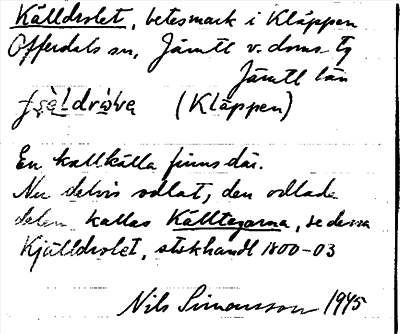 Källdrolet, betesmark i Kläppen
Offerdals sn, Jämtl v. doms tg
Jämtl län
(Kläppen)
En kallkälla finns där.
Nu delvis odlat, den odlade
delen kallas Källtegarna, se dessa
Kjälldrolet, storskhandl 1800-03
Nils Simonsson 1945